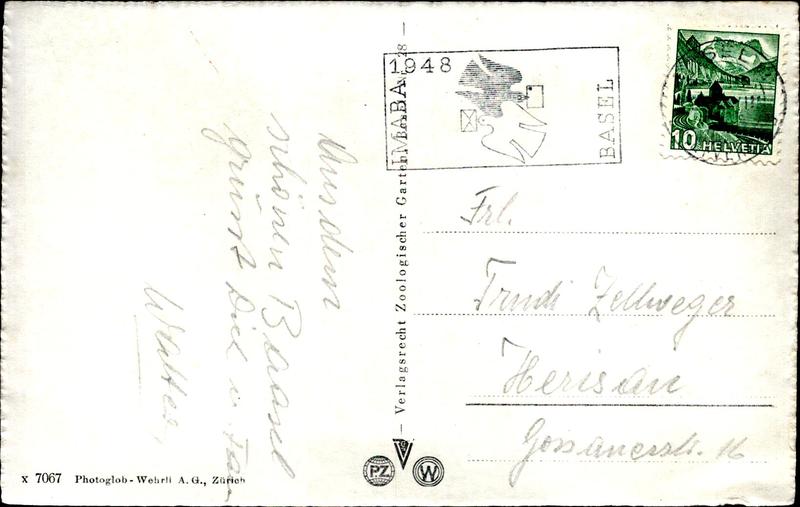 Aus dem
schönen Baasel
grüsst Dich u. Fam
Walter,
1948
IMABA
BASEL
10 HELVETIA
Frl.
Trudi Zellweger
Herisau
Gossauerstr. 16
Verlagsrecht Zoologischer Garten Basel Nr. 28
x 7067 Photoglob-Wehrli A.G., Zürich
PZ
W